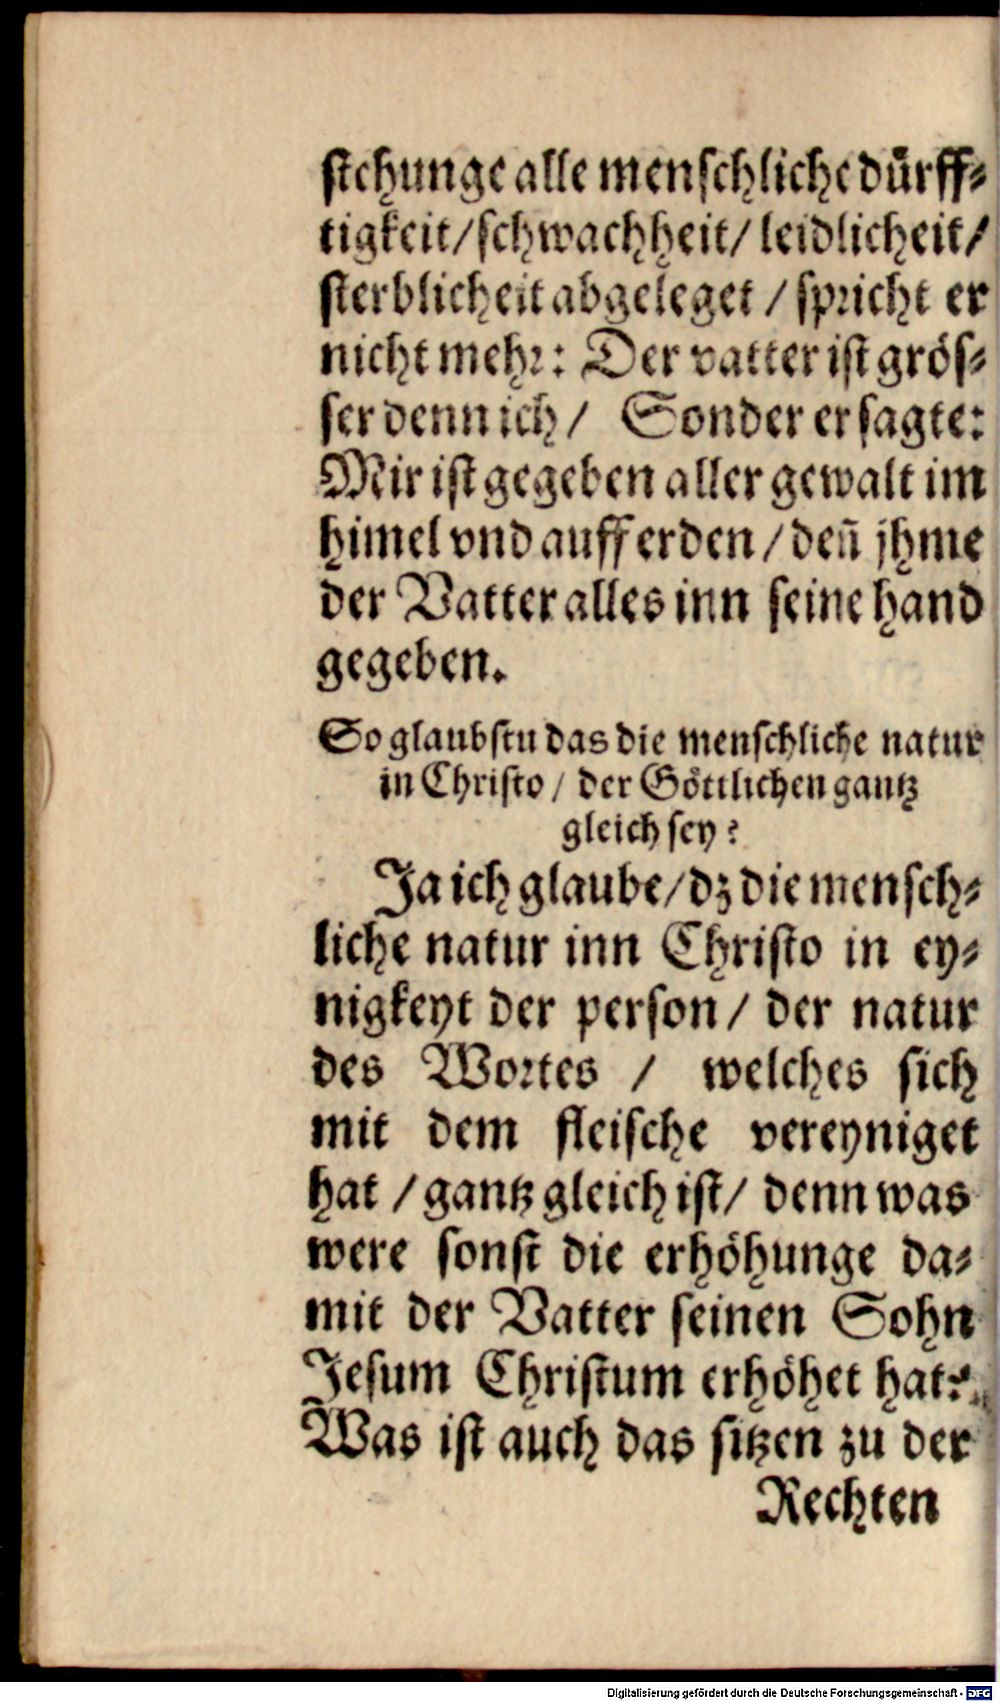 stehunge alle menschliche dürff-
tigkeit/schwachheit/ leidlicheit/
sterblicheit abgeleget / spricht er
nicht mehr: Der vatter ist grös-
ser denn ich / Sonder er sagte:
Mir ist gegeben aller gewalt im
himel vnd auff erden / deñ jhme
der Vatter alles inn seine hand
gegeben.
So glaubstu das die menschliche natur
in Christo / der Göttlichen gantz
gleich sey?
Ja ich glaube/dz die mensch-
liche natur inn Christo in ey-
nigkeyt der person / der natur
des Wortes / welches sich
mit dem fleische vereyniget
hat / gantz gleich ist/ denn was
were sonst die erhöhunge da-
mit der Vatter seinen Sohn
Jesum Christum erhöhet hat?
Was ist auch das sitzen zu der
Rechten
Digitalisierung gefördert durch die Deutsche Forschungsgemeinschaft - DFG